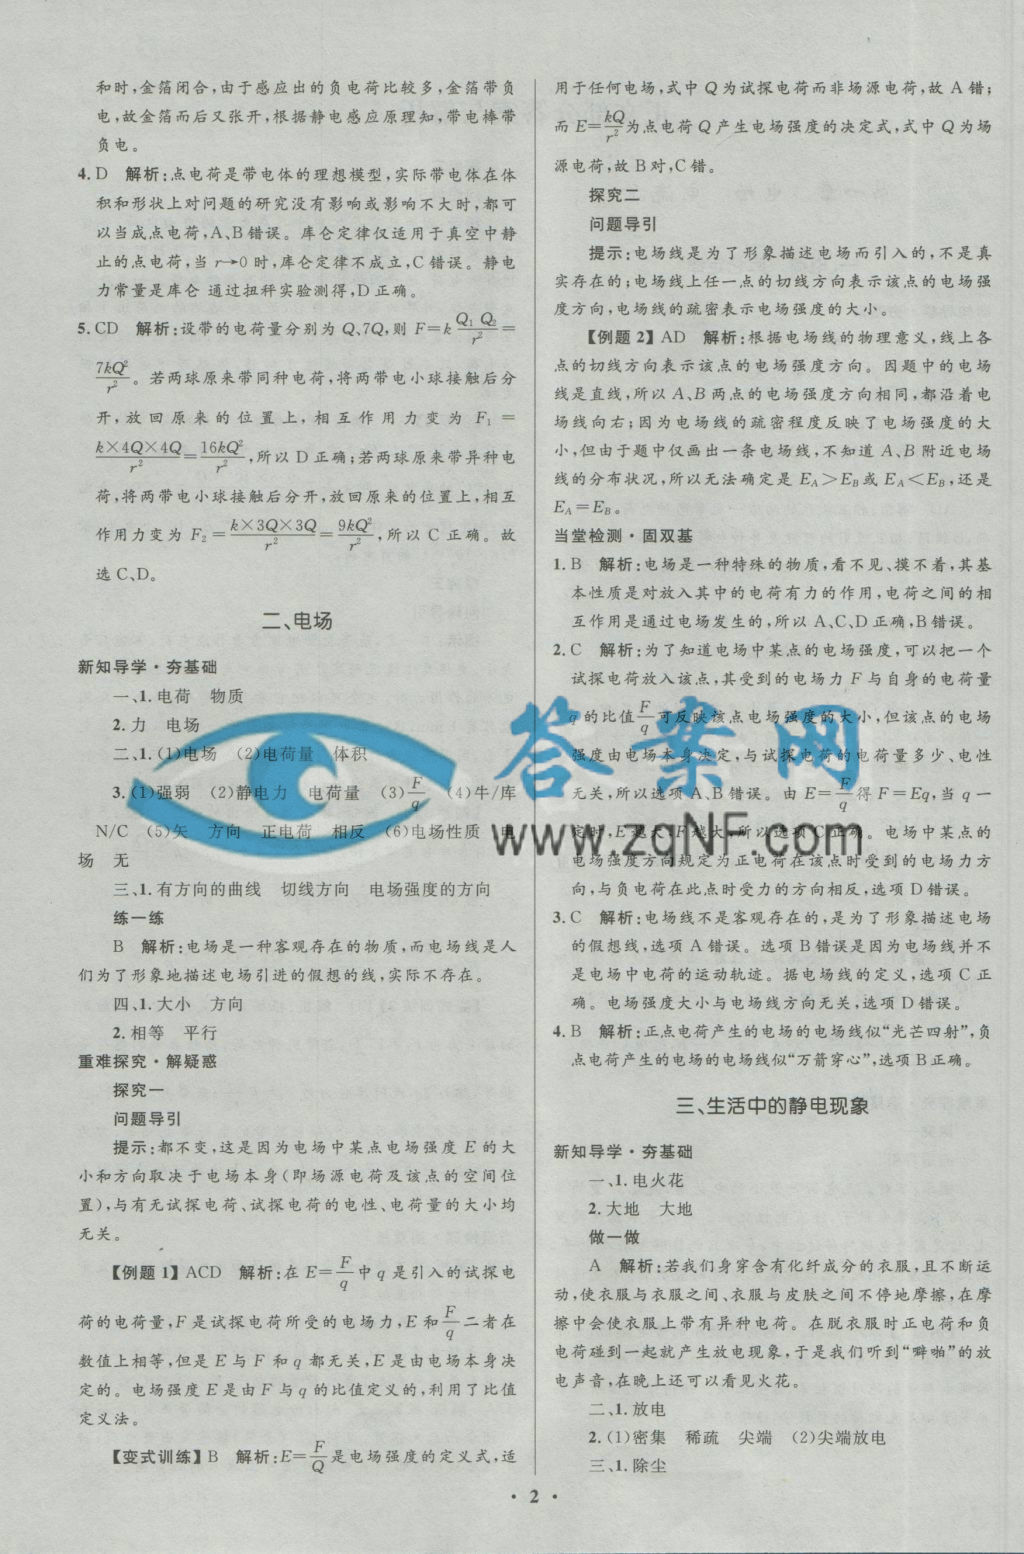 和时,金箔闭合,由于感应出的负电荷比较多,金箔带负
电,故金箔而后又张开,根据静电感应原理知,带电棒带
负电。
4. D 解析:点电荷是带电体的理想模型,实际带电体在体
积和形状上对问题的研究没有影响或影响不大时,都可
以当成点电荷,A、B错误。库仑定律仅适用于真空中静
止的点电荷,当 r→0 时,库仑定律不成立,C错误。静电
力常量是库仑 通过扭秤实验测得,D正确。
5. CD 解析:设带的电荷量分别为 Q、7Q,则 F=k Q₁Q₂/r²=
7kQ²/r²。若两球原来带同种电荷,将两带电小球接触后分
开,放回原来的位置上,相互作用力变为 F₁=
k×4Q×4Q/r²=16kQ²/r²,所以 D 正确;若两球原来带异种电
荷,将两带电小球接触后分开,放回原来的位置上,相互
作用力变为 F₂=k×3Q×3Q/r²=9kQ²/r²,所以 C 正确。故
选 C、D。
二、电场
新知导学·夯基础
一、1. 电荷 物质
2. 力 电场
二、1. (1)电场 (2)电荷量 体积
3. (1)强弱 (2)静电力 电荷量 (3)F/q (4)牛/库
N/C (5)矢 方向 正电荷 相反 (6)电场性质 电
场 无
三、1. 有方向的曲线 切线方向 电场强度的方向
练一练
B 解析:电场是一种客观存在的物质,而电场线是人
们为了形象地描述电场引进的假想的线,实际不存在。
四、1. 大小 方向
2. 相等 平行
重难探究·解疑惑
探究一
问题导引
提示:都不变,这是因为电场中某点电场强度 E 的大
小和方向取决于电场本身(即场源电荷及该点的空间位
置),与有无试探电荷、试探电荷的电性、电荷量的大小均
无关。
【例题 1】ACD 解析:在 E=F/q中 q 是引入的试探电
荷的电荷量,F 是试探电荷所受的电场力,E 和F/q二者在
数值上相等,但是 E 与 F 和 q 都无关,是由电场本身决
定的。电场强度 E 是由 F 与 q 的比值定义的,利用了比值
定义法。
【变式训练】B 解析:E=F/Q是电场强度的定义式,适
用于任何电场,式中 Q 为试探电荷而非场源电荷,故 A 错;
而 E=kQ/r²为点电荷 Q 产生电场强度的决定式,式中 Q 为场
源电荷,故 B 对,C 错。
探究二
问题导引
提示:电场线是为了形象描述电场而引入的,不是真
实存在的;电场线上任一点的切线方向表示该点的电场强
度方向,电场线的疏密表示电场强度的大小。
【例题 2】AD 解析:根据电场线的物理意义,线上各
点的切线方向表示该点的电场强度方向。因题中的电场
线是直线,所以 A、B 两点的电场强度方向相同,都沿着电
场线向右;因为电场线的疏密程度反映了电场强度的大
小,但由于题中仅画出一条电场线,不知道 A、B 附近电场
线的分布状况,所以无法确定是 E_A>E_B 或 E_A<E_B,还是
E_A=E_B。
当堂检测·固双基
1. B 解析:电场是一种特殊的物质,看不见、摸不着,其基
本性质是对放入其中的电荷有力的作用,电荷之间的相
互作用是通过电场发生的,所以 A、C、D 正确,B 错误。
2. C 解析:为了知道电场中某点的电场强度,可以把一个
试探电荷放入该点,其受到的电场力 F 与自身的电荷量
q 的比值F/q可反映该点电场强度的大小,但该点的电场
强度由电场本身决定,与试探电荷的电荷量多少、电性
无关,所以选项 A、B 错误。由 E=F/q得 F=Eq,当 q 一
定时,E 越大,F 越大,所以选项 C 正确。电场中某点的
电场强度方向规定为正电荷在该点时受到的电场力方
向,与负电荷在此点时受力的方向相反,选项 D 错误。
3. C 解析:电场线不是客观存在的,是为了形象描述电场
的假想线,选项 A 错误。选项 B 错误是因为电场线并不
是电场中电荷的运动轨迹。据电场线的定义,选项 C 正
确。电场强度大小与电场线方向无关,选项 D 错误。
4. B 解析:正点电荷产生的电场的电场线似“光芒四射”,负
点电荷产生的电场的电场线似“万箭穿心”,选项 B 正确。
三、生活中的静电现象
新知导学·夯基础
一、1. 电火花
2. 大地 大地
做一做
A 解析:若我们身穿含有化纤成分的衣服,且不断运
动,使衣服与衣服之间、衣服与皮肤之间不停地摩擦,在摩
擦中会使衣服上带有异种电荷。在脱衣服时正电荷和负
电荷碰到一起就产生放电现象,于是我们听到“噼啪”的放
电声音,在晚上还可以看见火花。
二、1. 放电
2. (1)密集 稀疏 尖端 (2)尖端放电
三、1. 除尘
· 2 ·
答案网
www.zqNF.com